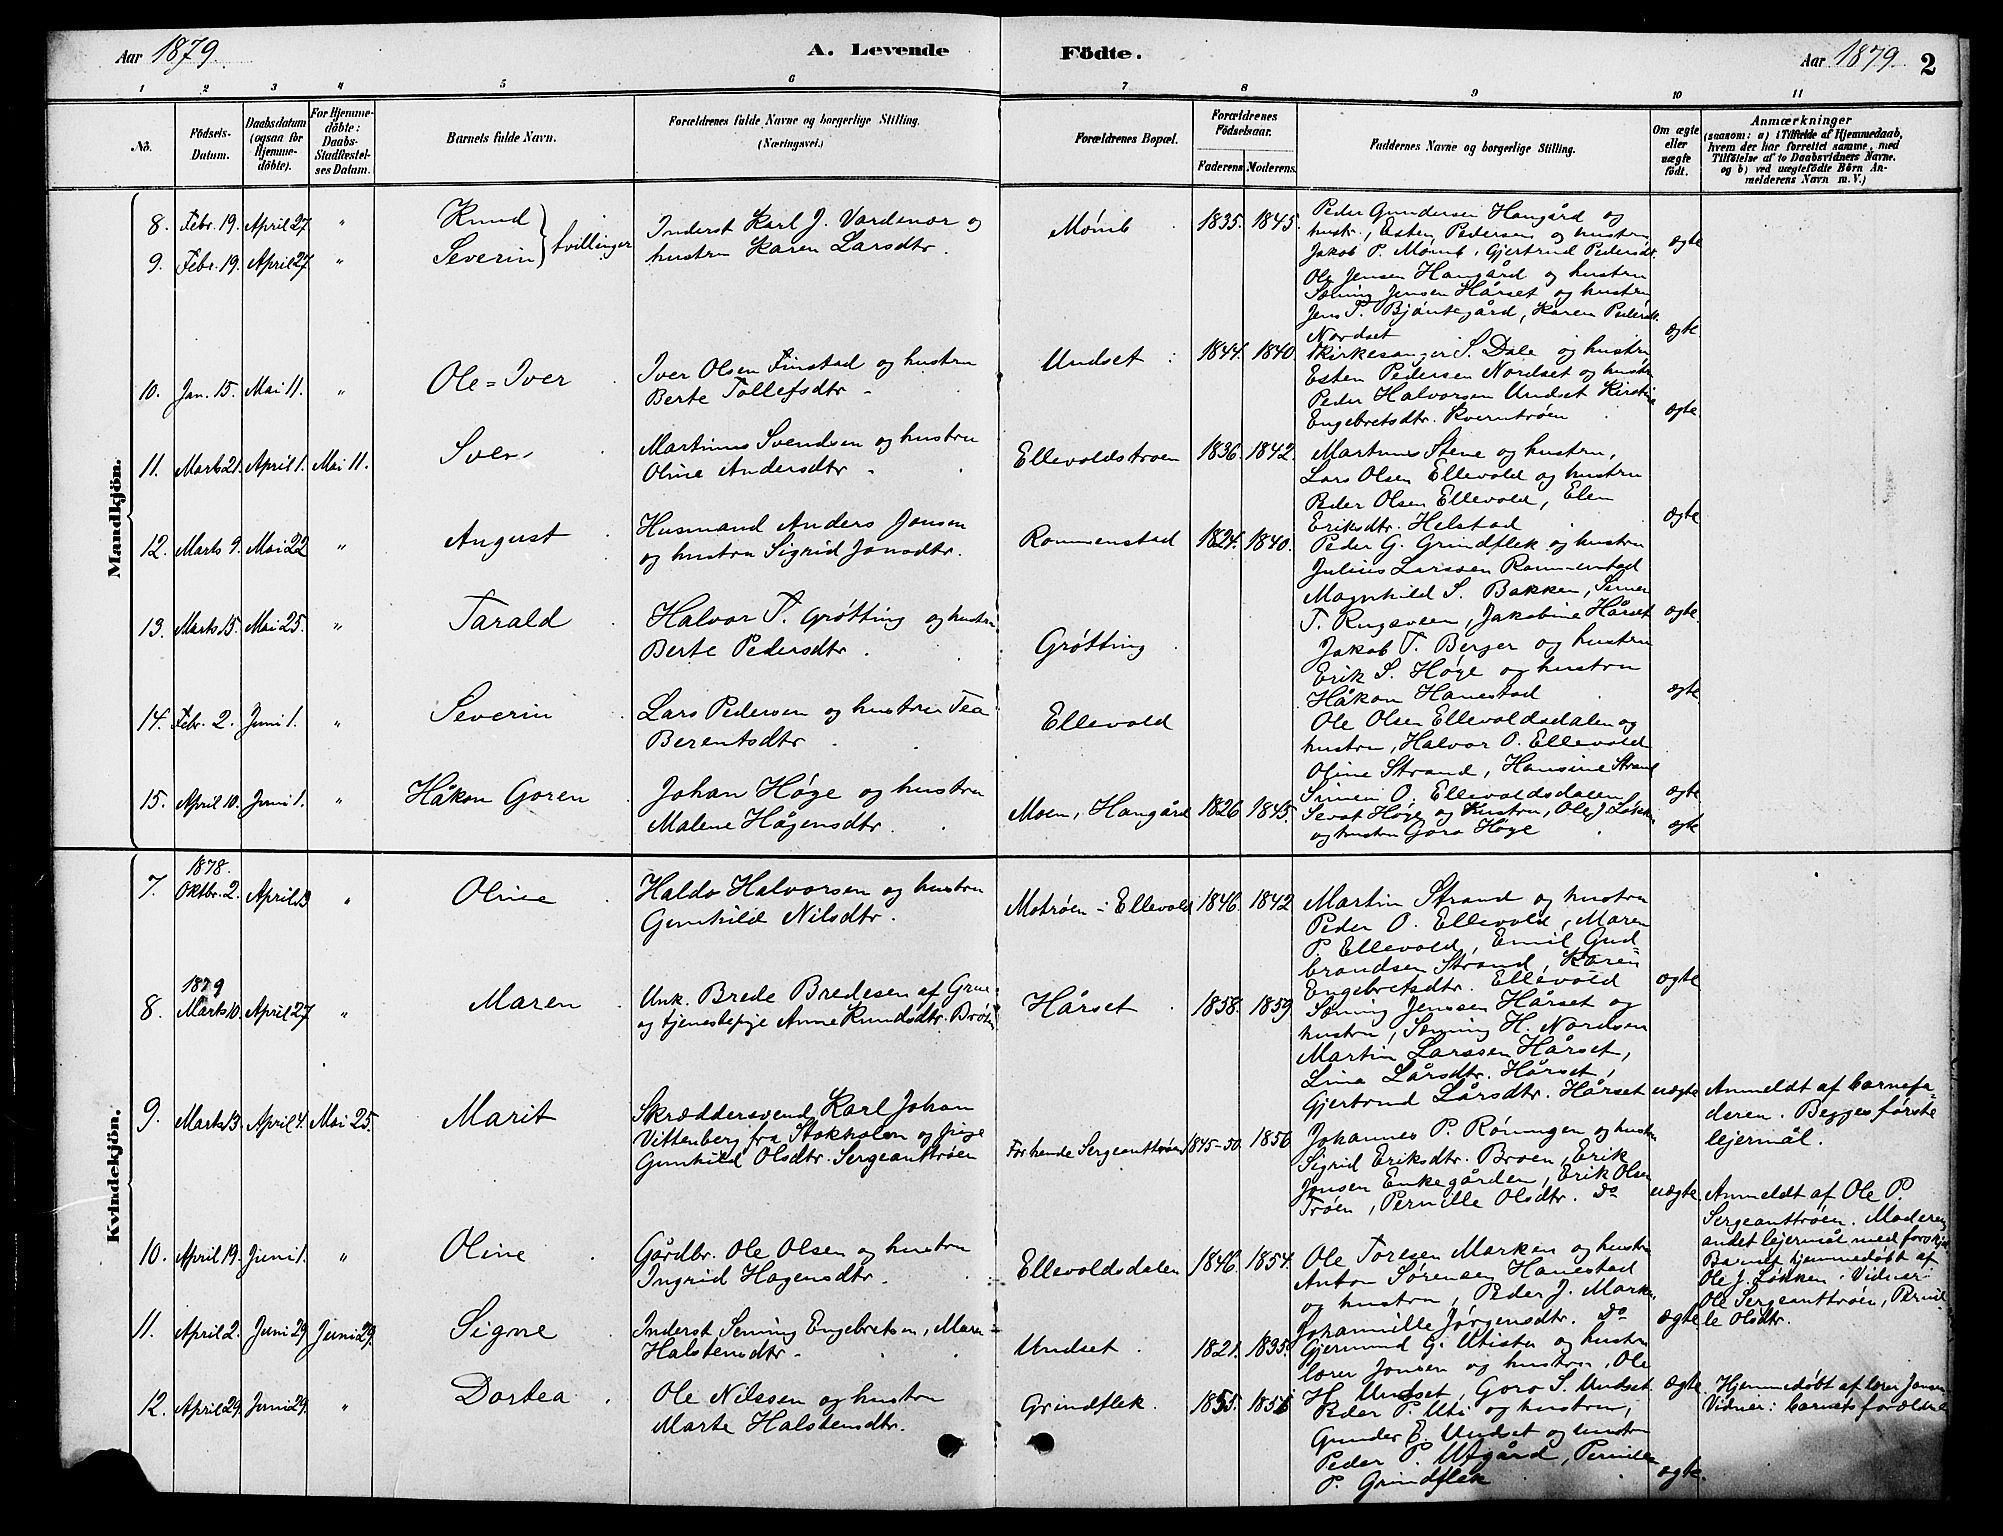 Aar 1879.
A. Levende Födte.
Aar 1879. 2
1 2 3 4 5 6 7 8 9 10 11
No.
Födsels-Datum.
Daabsdatum (ogsaa for Hjemmedöbte).
For Hjemmedöbte: Daabs-Stadfæstelses Datum.
Barnets fulde Navn.
Forældrenes fulde Navne og borgerlige Stilling.
(Næringsvei.)
Forældrenes Bopæl.
Forældrenes Födselsaar.
Faderens. Moderens.
Faddernes Navne og borgerlige Stilling.
Om ægte eller uægte födt.
Anmærkninger
(saasom: a) i Tilfælde af Hjemmedaab,
hvem der har forrettet samme, med
Tilföielse af to Daabsvidners Navne.
og b) ved uægtefödte Börn An-
melderens Navn m. V.)
Mandkjön.
8. Febr. 19. April 27 " Knud } tvillinger
9. Febr. 19. April 27 " Severin
Inderst Karl J. Vardenær og
hustru Karen Larsdtr
Mømb 1835. 1845.
Peder Gundersen Hangård og
hustr., Esten Pedersen og hustru
Jakob P. Mømb, Gjertrud Pedersdt. ægte
Ole Jensen Hangård og hustru
Sæming Jensen Hårset og hustru
Jens P. Bjøntegård, Karen Pedersdt.
Nordset ægte
10. Jan. 15. Mai 11. " Ole=Iver
Iver Olsen Finstad og hustru
Berte Tollefsdtr
Undset 1844. 1840.
Kirkesanger S. Dale og hustru
Esten Pedersen Nordset og hustr
Peder Halvorsen Undset Kirstine
Engebretsdtr. Kverntrøen ægte
11. Marts 21. April 1. Mai 11. Iver
Martinus Svendsen og hustru
Oline Andersdtr
Ellevoldstrøen 1836. 1842.
Martinus Stene og hustru,
Lars Olsen Ellevold og hustru
Peder Olsen Ellevold, Elen
Eriksdtr. Helstad ægte
12. Marts 9. Mai 22 " August
Husmand Anders Jonsen
og hustru Sigrid Jonsdtr.
Rommenstad 1824. 1840.
Peder G. Grindflek og hustru
Julius Larssen Rommenstad
Magnhild S. Bakken, Simen
T. Rugsveen, Jakobine Hårset ægte
13. Marts 15. Mai 25. " Tarald
Halvor T. Grøtting og hustru
Berte Pedersdtr
Grøtting
Jakob T. Berger og hustru
Erik S. Høye og hustru
Håkon Hanestad ægte
14. Febr. 2. Juni 1. " Severin
Lars Pedersen og hustru Tea
Berentsdtr
Ellevold
Ole Olsen Ellevoldsdalen og
hustru, Halvor O. Ellevold
Oline Strand, Hansine Strand
Simen O. Ellevoldsdalen ægte
15. April 10. Juni 1. " Håkon Goren
Johan Høye og hustru
Malene Hågensdtr.
Moen, Hangård 1826 1845.
Sevat Høye og Hustru, Ole J Løkken
og hustru Goro Høye ægte
Kvindekjön.
1878.
7. Oktbr. 2. April 13 " Oline
Haldo Halvorsen og hustru
Gunhild Nilsdtr.
Motrøen i Ellevold 1846. 1842
Martin Strand og hustru
Peder O. Ellevold, Maren
P. Ellevold, Emil Gud=
brandsen Strand, Karen
Engebretsdtr. Ellevold ægte
1879
8. Marts 10. April 27 " Maren
Unk. Brede Bredesen af Grue
og tjenestepige Anne Knudsdtr. Brøten
Hårset 1858. 1859
Sæming Jenssen Hårset og
hustru, Sæming H. Nordsen
Martin Larssen Hårset,
Lina Larsdtr. Hårset,
Gjertrud Larsdtr. Hårset uægte
Anmeldt af barnefa-
deren. Begges første
lejermål.
9. Marts 13. April 4. Mai 25. Marit
Skræddersvend Karl Johan
Vittenberg fra Stokholm og pige
Gunhild Olsdtr. Sergeanttrøen
For hende Sergeanttrøen 1845-50. 1856
Johannes P. Røningen og hustru
Sigrid Eriksdtr. Broen, Erik
Jonsen Enkegården, Erik Olsen
Trøen, Pernille Olsdtr. Do uægte
Anmeldt af Ole P.
Sergeanttrøen. Moderens
andet lejermål med forskjel
Barnet hjemmedøbt af
Ole J. Løkken. Vidner:
Ole Sergeanttrøen, Pernil
le Olsdtr.
10. April 19. Juni 1. " Oline
Gårdbr. Ole Olsen og hustru
Ingrid Hagensdtr.
Ellevoldsdalen 1846. 1854.
Ole Toresen Marken og hustru
Anton Sørensen Hanestad
og hustru, Peder J. Marken
Johannille Jørgensdtr. Do ægte
11. April 2. Juni 29 Juni 29. Signe
Inderst Seming Engebretsen, Mari
Halstensdtr.
Undset 1821. 1835.
Gjermund G. Utistu og hustru
lærer Jonsen og hustru, Ole
H. Undset, Goro S. Undset ægte
Hjemmedøbt af lærer Jonsen
Vidner: barnets forældre
12. April 29. Juni 29. " Dortea
Ole Nilssen og hustru
Marte Halstensdtr.
Grindflek 1855. 1856
Peder P. Uti og hustru,
Gunder E. Undset og hustru
Peder P. Utgård, Pernille
P. Grindflek ægte.